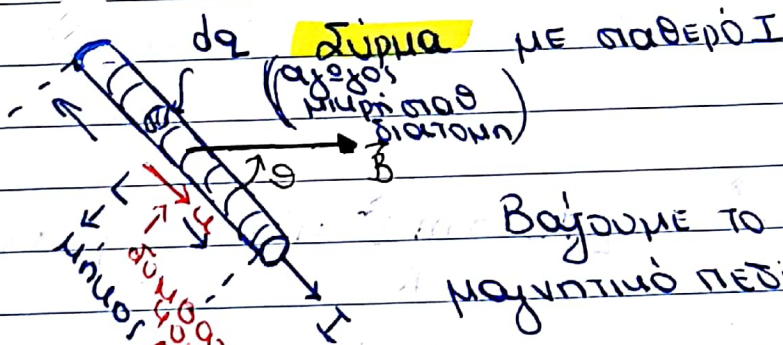 dq Σύρμα με σταθερό I
(αγωγός
μικρή σταθ
διατομη)
B
θ
L
μήκος
I
Βάζουμε το
μαγνητικό πεδ